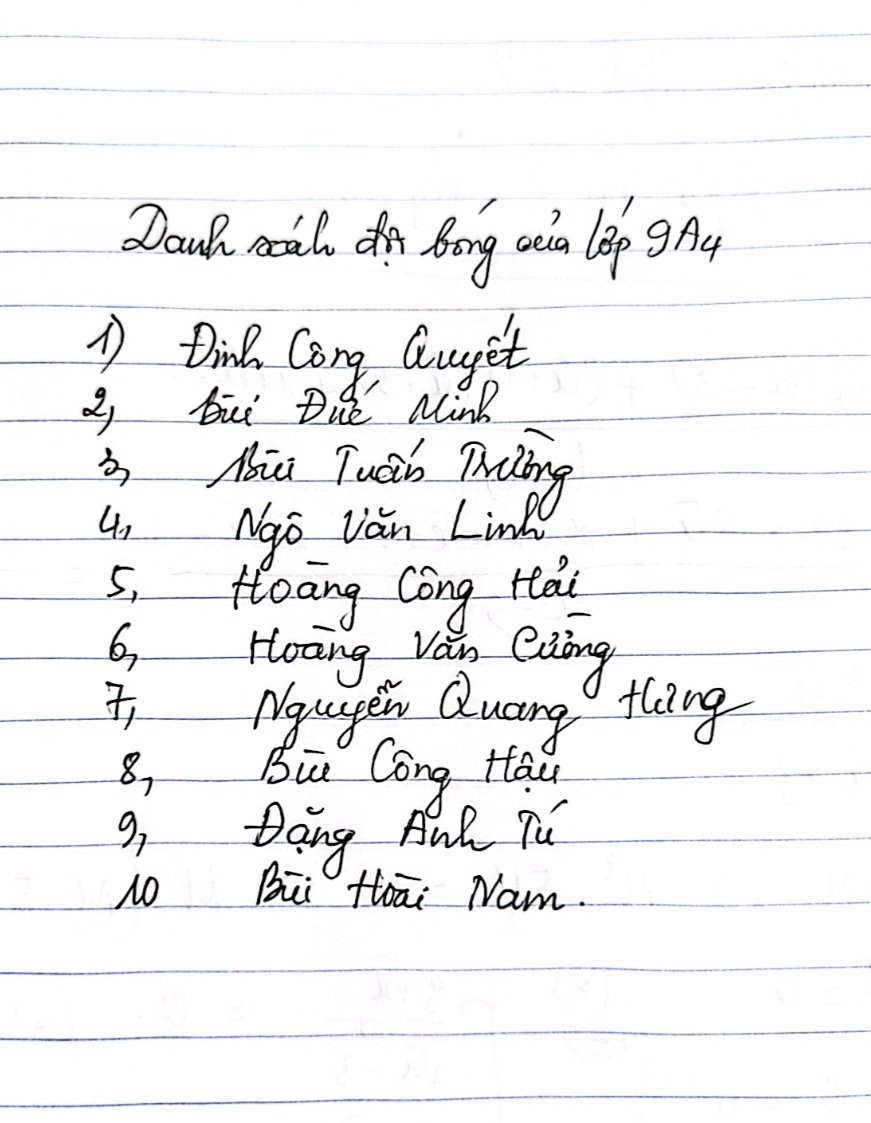 Danh sách đội bóng của lớp 9A4
1) Đinh Công Quyết
2, Bùi Đức Minh
3, Bùi Tuấn Trường
4, Ngô Văn Linh
5, Hoàng Công Hải
6, Hoàng Văn Cường
7, Nguyễn Quang Hưng
8, Bùi Công Hậu
9, Đặng Anh Tú
10 Bùi Hoài Nam.